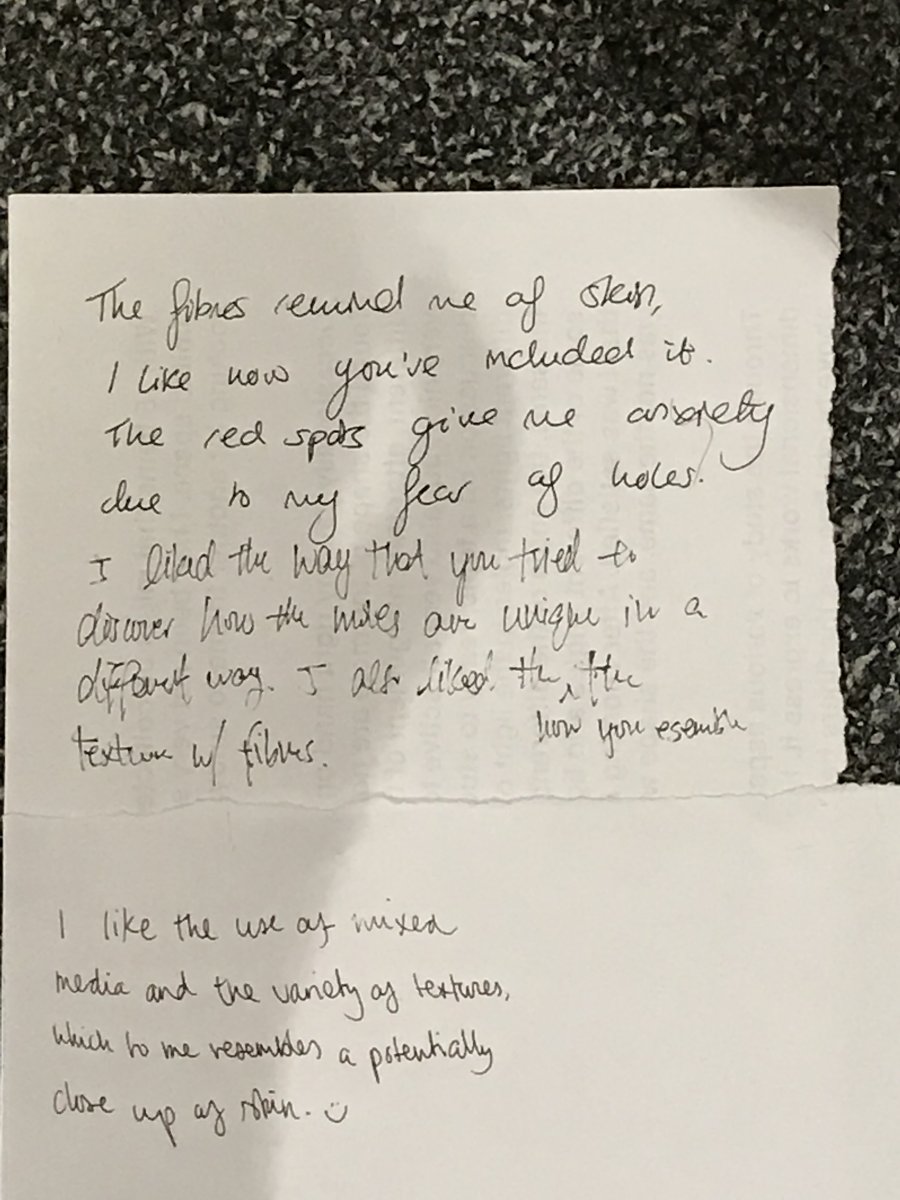 The fibres remind me of skin,
I like how you've included it.
The red spots give me anxiety
due to my fear of holes.
I liked the way that you tried to
discover how the moles are unique in a
different way. I also liked the ‸ the
how you esemble
texture w/ fibres.
I like the use of mixed
media and the variety of textures,
which to me resembles a potentially
close up of skin. :)